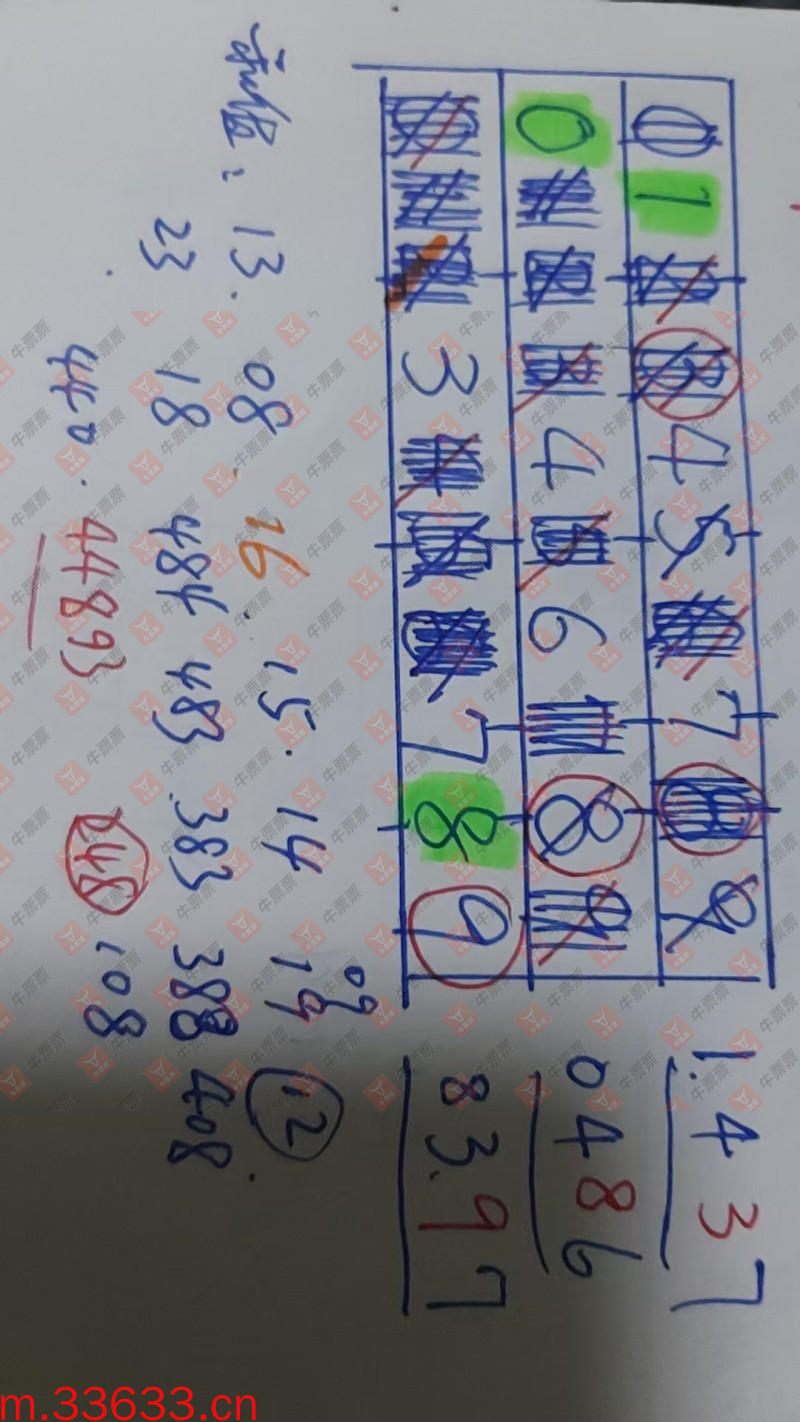 0 1 2 3 4 5 7 8 9 1.4 3 7
0 4 6 8 9 0 4 8 6
3 7 8 9 8 3.9 7
09
和值: 13. 08. 16. 15. 14 19 12
23 18 484 483 383 388 408
440. 44893 108
牛票票
m.33633.cn